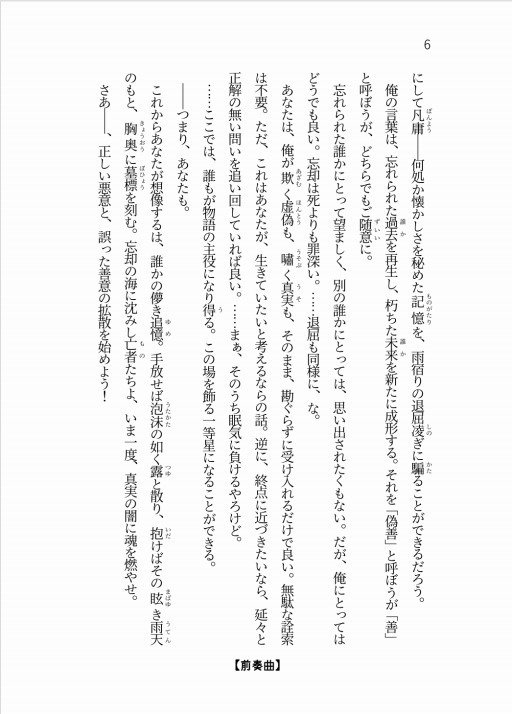 6
にして凡庸――何処か懐かしさを秘めた記憶を、雨宿りの退屈凌ぎに騙ることができるだろう。
俺の言葉は、忘れられた過去を再生し、朽ちた未来を新たに成形する。それを「偽善」と呼ぼうが「善」
と呼ぼうが、どちらでもご随意に。
忘れられた誰かにとって望ましく、別の誰かにとっては、思い出されたくもない。だが、俺にとっては
どうでも良い。忘却は死よりも罪深い。……退屈も同様に、な。
あなたは、俺が欺く虚偽も、嘯く真実も、そのまま、勘ぐらずに受け入れるだけで良い。無駄な詮索
は不要。ただ、これはあなたが、生きていたいと考えるならの話。逆に、終点に近づきたいなら、延々と
正解の無い問いを追い回していれば良い。……まぁ、そのうち眠気に負けるやろけど。
……ここでは、誰もが物語の主役になり得る。この場を飾る一等星になることができる。
――つまり、あなたも。
これからあなたが想像するは、誰かの儚き追憶。手放せば泡沫の如く露と散り、抱けばその眩き雨天
のもと、胸奥に墓標を刻む。忘却の海に沈みし亡者たちよ、いま一度、真実の闇に魂を燃やせ。
さあ――、正しい悪意と、誤った善意の拡散を始めよう！
【前奏曲】